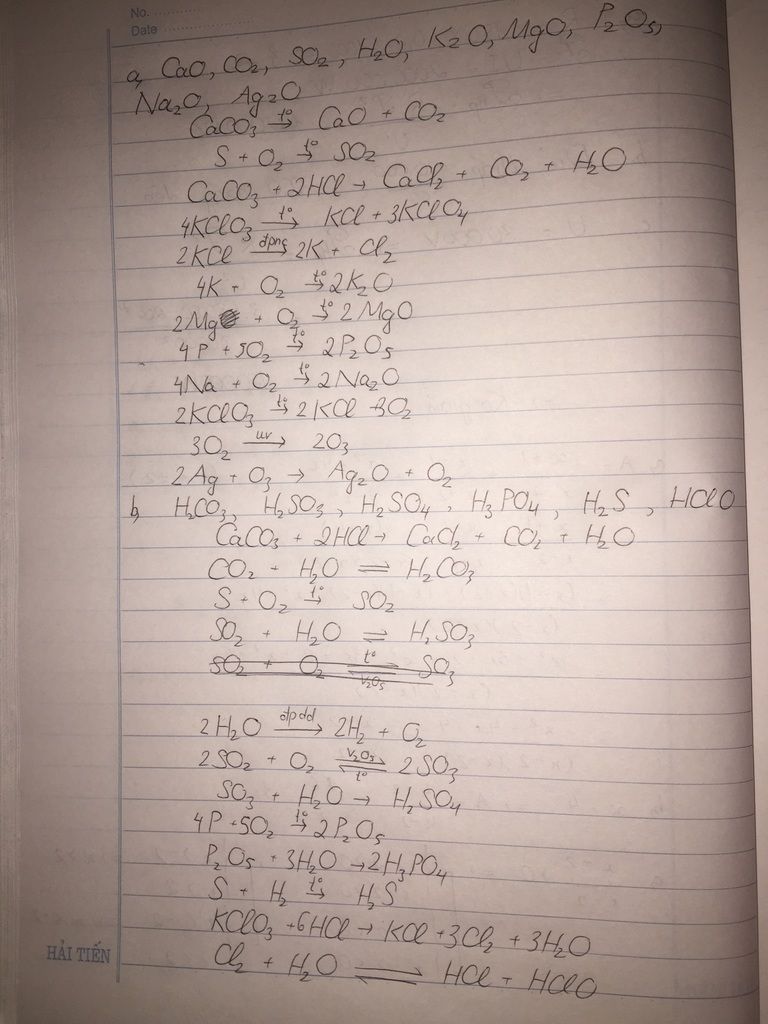 No. ................
Date ................
a, CaO, CO₂, SO₂, H₂O, K₂O, MgO, P₂O₅,
Na₂O, Ag₂O
CaCO₃ –t°→ CaO + CO₂
S + O₂ –t°→ SO₂
CaCO₃ + 2HCl → CaCl₂ + CO₂ + H₂O
4KClO₃ –t°→ KCl + 3KClO₄
2KCl –đpnc→ 2K + Cl₂
4K + O₂ –t°→ 2K₂O
2Mg + O₂ –t°→ 2MgO
4P + 5O₂ –t°→ 2P₂O₅
4Na + O₂ –t°→ 2Na₂O
2KClO₃ –t°→ 2KCl + 3O₂
3O₂ –uv→ 2O₃
2Ag + O₃ → Ag₂O + O₂
b, H₂CO₃, H₂SO₃, H₂SO₄, H₃PO₄, H₂S, HClO
CaCO₃ + 2HCl → CaCl₂ + CO₂ + H₂O
CO₂ + H₂O ⇌ H₂CO₃
S + O₂ –t°→ SO₂
SO₂ + H₂O ⇌ H₂SO₃
SO₂ + O₂ ⇌ (t°, V₂O₅) SO₃
2H₂O –đpdd→ 2H₂ + O₂
2SO₂ + O₂ ⇌ (V₂O₅, t°) 2SO₃
SO₃ + H₂O → H₂SO₄
4P + 5O₂ –t°→ 2P₂O₅
P₂O₅ + 3H₂O → 2H₃PO₄
S + H₂ –t°→ H₂S
KClO₃ + 6HCl → KCl + 3Cl₂ + 3H₂O
HẢI TIẾN
Cl₂ + H₂O ⇌ HCl + HClO